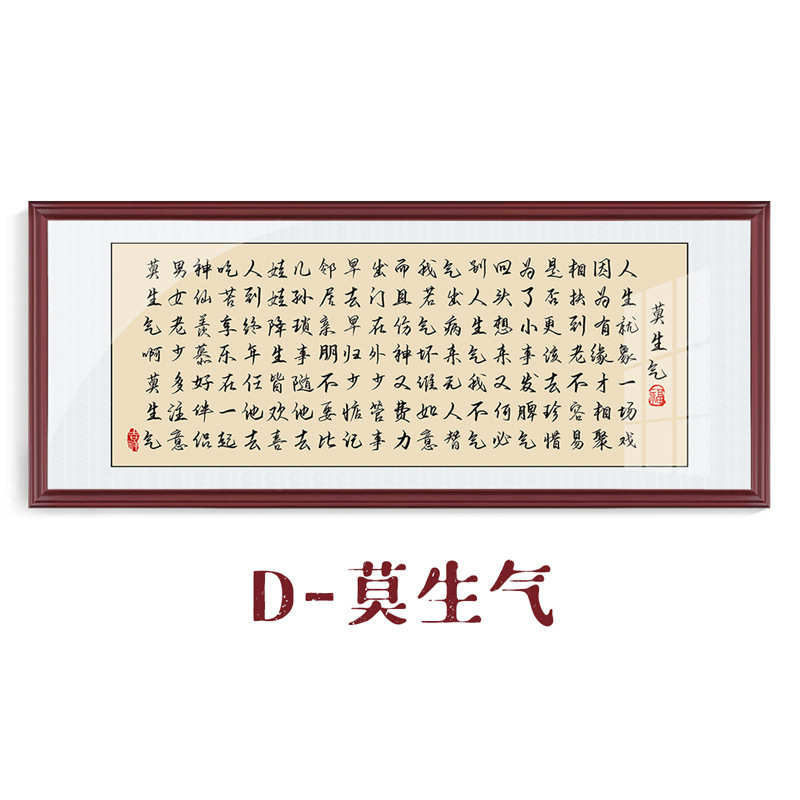 莫生气
人生就象一场戏
因为有缘才相聚
相扶到老不容易
是否更该去珍惜
为了小事发脾气
回头想来又何必
别人生气我不气
气出病来无人替
我若气坏谁如意
而且伤神又费力
出门在外少管事
早去早归少惦记
邻居亲朋不要比
儿孙琐事随他去
娃娃降生皆欢喜
人到终年任他去
吃苦享乐在一起
神仙羡慕好伴侣
男女老少多注意
莫生气啊莫生气
D-莫生气